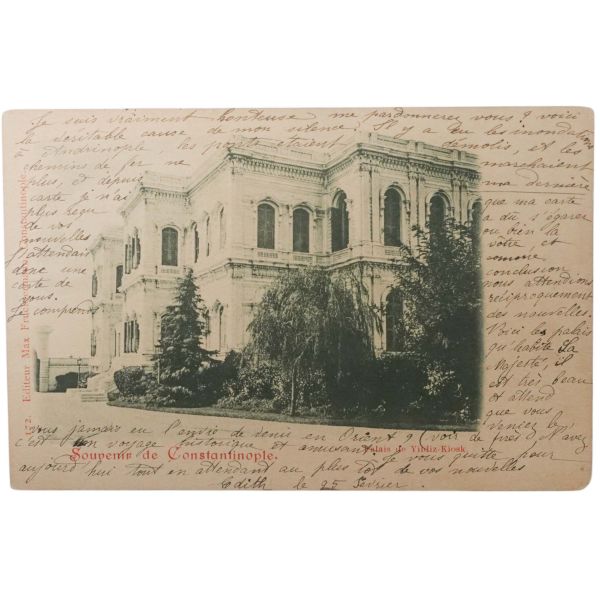 Je suis vraiment honteuse me pardonnerez vous? voici
la véritable cause de mon silence Il y a eu les inondations
Andrinople les ponts étaient démolis et les
chemins de fer ne marchaient
plus, et depuis ma dernière
carte je n'ai que ma carte
plus reçu a dû s'égarer
de vos ou bien la
nouvelles vôtre, et
J'attendais comme
donc une conclusion
carte de nous attendions
vous. réciproquement
Je comprends des nouvelles.
Voici le palais
qu'habite Sa
Majesté, il
est très beau
et attend
que vous
veniez le
voir de près
vous jamais eu l'envie de venir en Orient? N'avez
c'est un voyage historique et amusant Je vous quitte pour
aujourd'hui tout en attendant au plus tôt de vos nouvelles
Edith le 25 février.
Souvenir de Constantinople.
Palais de Yildiz-Kiosk
Editeur Max Fruchtermann, Constantinople.